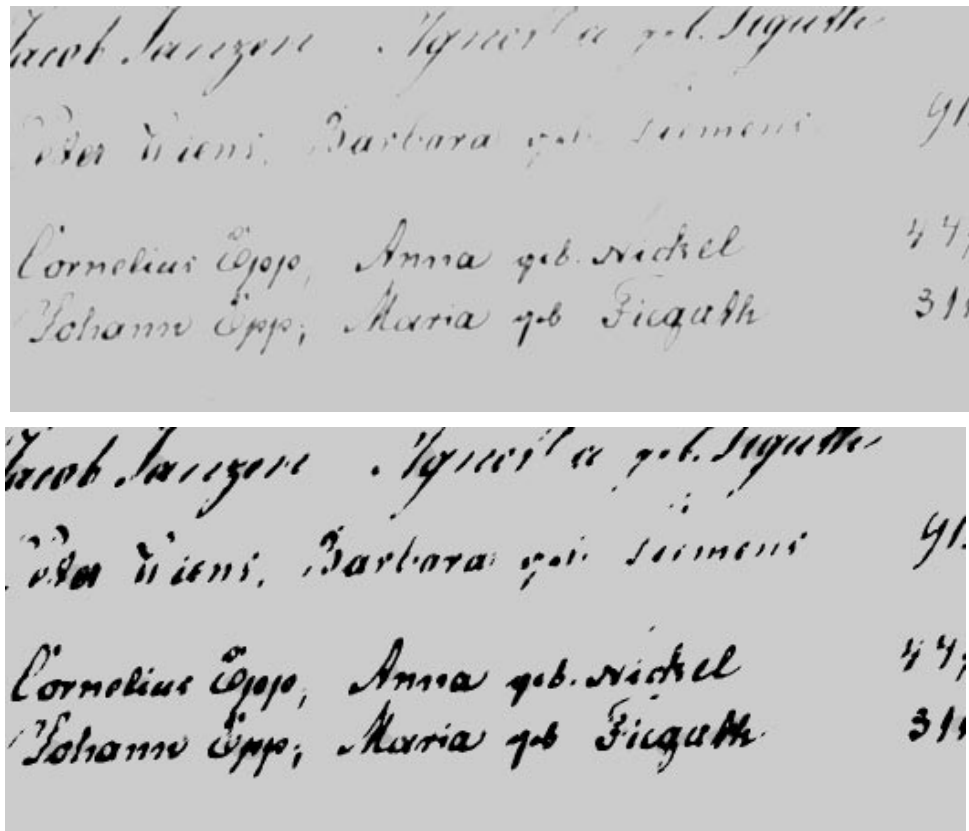 Jacob Janzen Agnes'a geb. Figuth
Peter Wiens, Barbara geb. Siemens 91
Cornelius Epp, Anna geb. Nickel 44
Johann Epp, Maria geb Fieguth 31
Jacob Janzen Agnes'a geb. Figuth
Peter Wiens, Barbara geb. Siemens 91
Cornelius Epp, Anna geb. Nickel 44
Johann Epp, Maria geb Fieguth 31